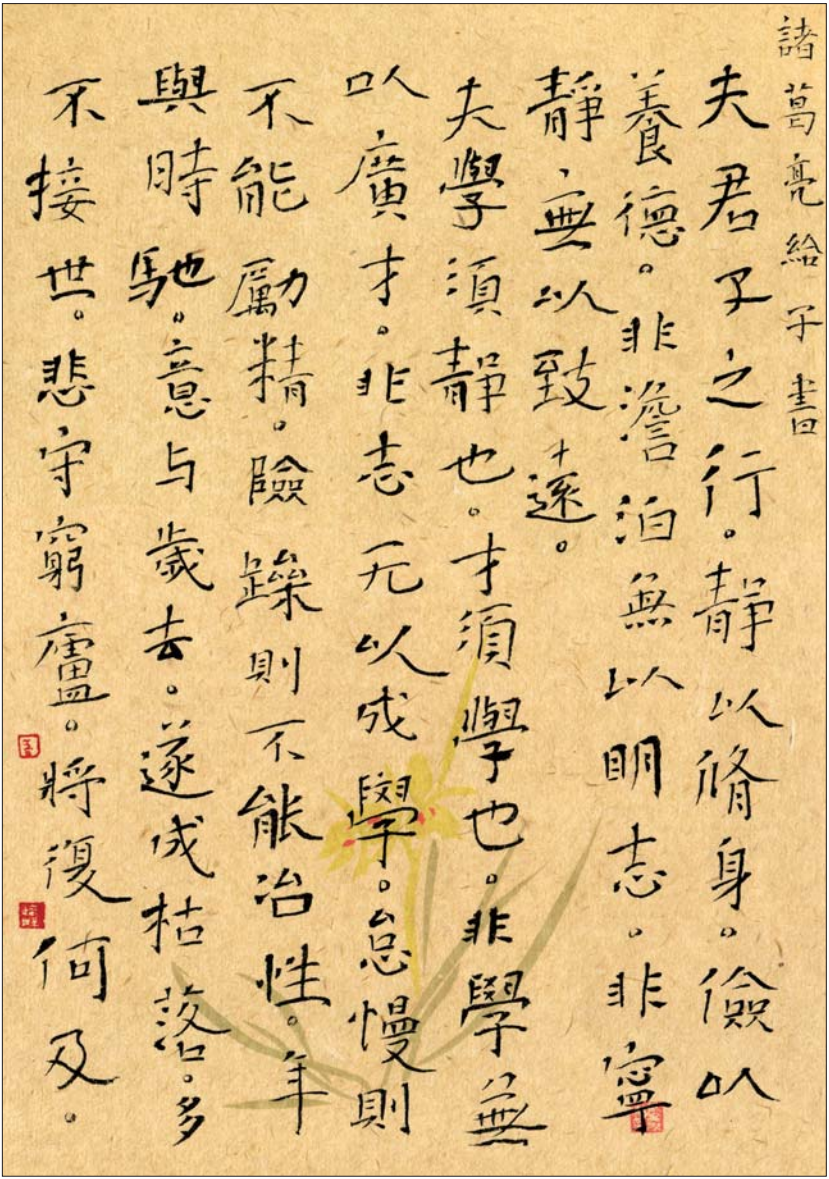 諸葛亮給子書
夫君子之行。靜以脩身。儉以
養德。非澹泊無以明志。非寧
靜、無以致遠。
夫學須靜也。才須學也。非學無
以廣才。非志无以成學。怠慢則
不能勵精。險躁則不能冶性。年
與時馳。意与歲去。遂成枯落。多
不接世。悲守窮廬。將復何及。